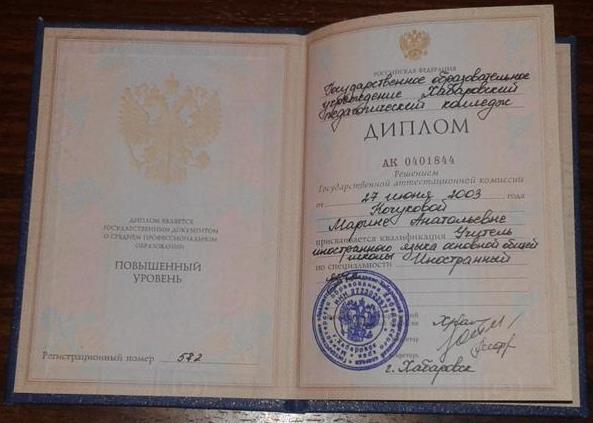 ДИПЛОМ ЯВЛЯЕТСЯ
ГОСУДАРСТВЕННЫМ ДОКУМЕНТОМ
О СРЕДНЕМ ПРОФЕССИОНАЛЬНОМ
ОБРАЗОВАНИИ
ПОВЫШЕННЫЙ
УРОВЕНЬ
Регистрационный номер 582
РОССИЙСКАЯ ФЕДЕРАЦИЯ
Государственное образовательное
учреждение Хабаровский
педагогический колледж
ДИПЛОМ
АК 0401844
Решением
Государственной аттестационной комиссии
от 27 июня 2003 года
Кочуковой
Марине Анатольевне
присваивается квалификация Учитель
иностранного языка основной общей
школы
по специальности Иностранный
язык
г. Хабаровск